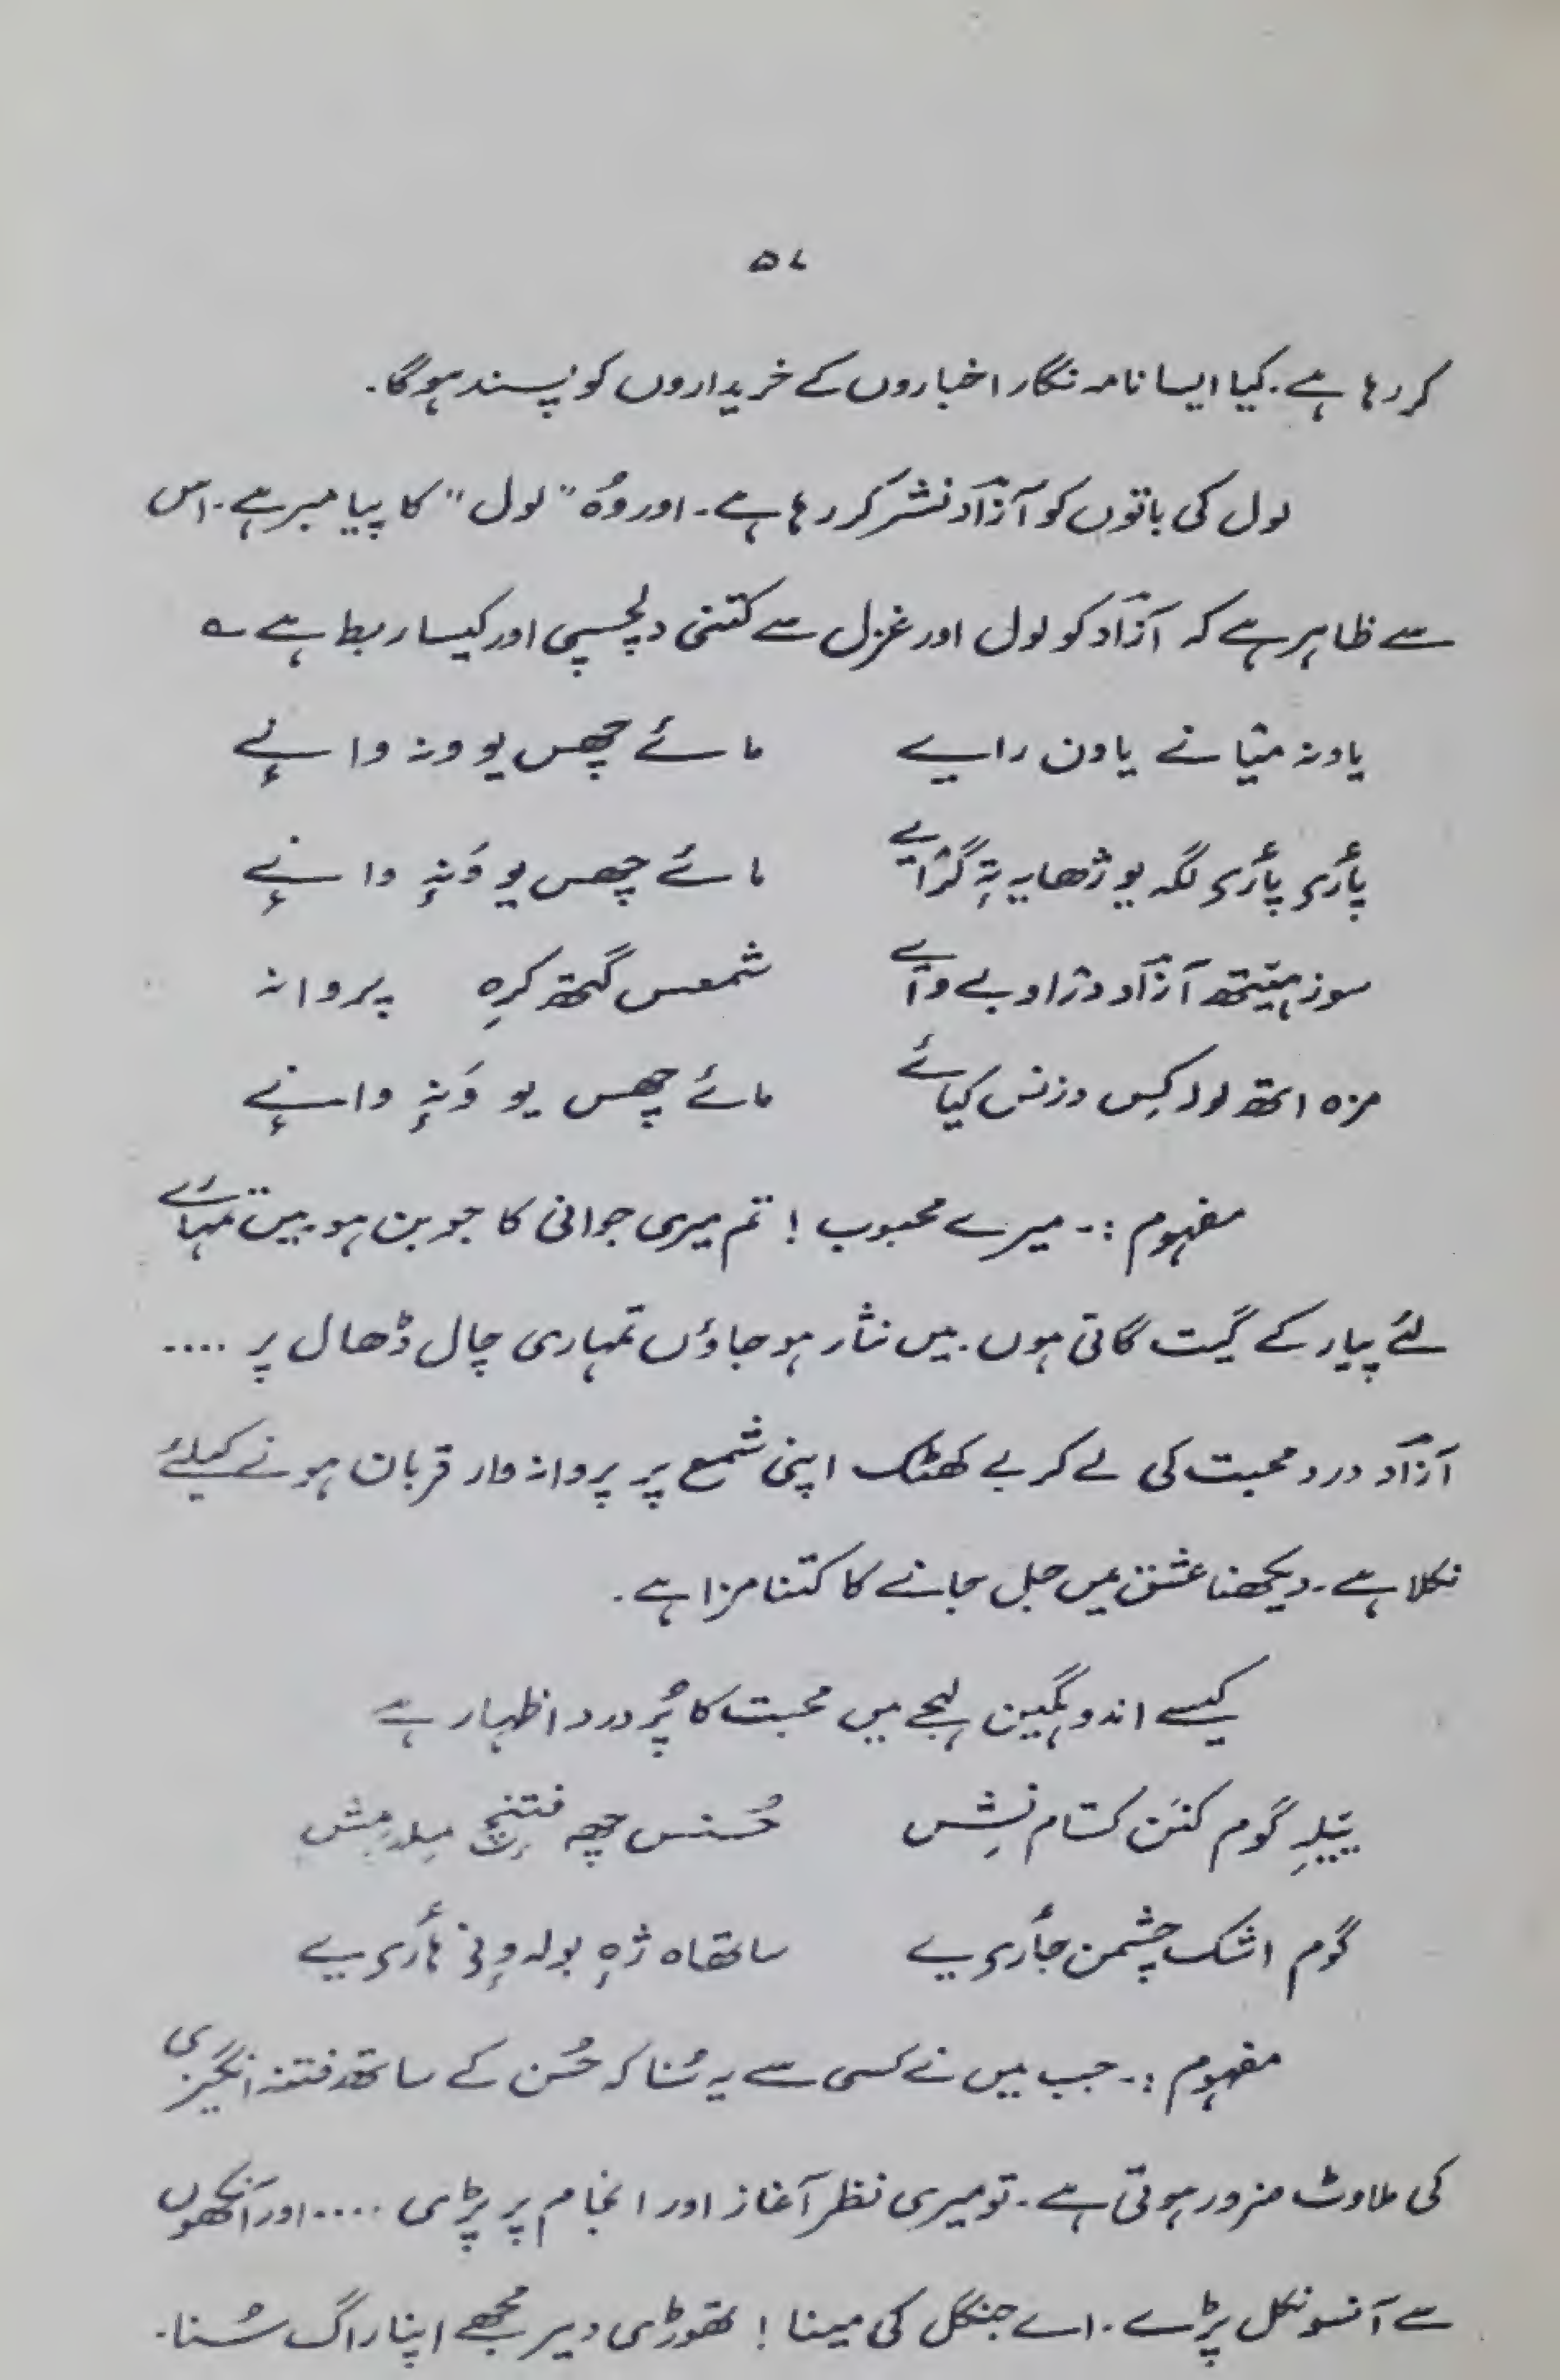 ۵۷
کر رہا ہے۔ کیا ایسا نامہ نگار اخباروں کے خریداروں کو پسند ہوگا۔
لول کی باتوں کو آزاد نشر کر رہا ہے۔ اور وُہ "لول" کا پیامبر ہے۔ اس
سے ظاہر ہے کہ آزاد کو لول اور غزل سے کتنی دلچسپی اور کیسا ربط ہے ؎
یاونہ میانے یاون رایے مائے چھس یو ونہ وانے
پأری پأری لگہ یو ژھایہ تہٕ گرایے مائے چھس یو وَنہٕ وانے
سوز ہیتھ آزاد دراو بے وایے شمعس گتھ کرِہ پروانہ
مزہ اتھ لولہ کِس دزنس کیائے مائے چھس یو وَنہٕ وانے
مفہوم :۔ میرے محبوب ! تم میری جوانی کا جوبن ہو۔ میں تمہارے
لئے پیار کے گیت گاتی ہوں۔ میں نثار ہو جاؤں تمہاری چال ڈھال پر ....
آزاد درد محبت کی لے کر بے کھٹک اپنی شمع پر پروانہ وار قربان ہونے کیلئے
نکلا ہے۔ دیکھنا عشق میں جل جانے کا کتنا مزا ہے۔
کیسے اندوہگین لہجے میں محبت کا پُر درد اظہار ہے
ییلہِ گوم کنَن کتام نِشس حُسنس چھہ فتنٕچ میلہ مِش
گوم اشک چشمن جأری یے ساتھاہ ژہٕ بولہ ونی ہأری یے
مفہوم :۔ جب میں نے کسی سے یہ سُنا کہ حُسن کے ساتھ فتنہ انگیزی
کی ملاوٹ ضرور ہوتی ہے۔ تو میری نظر آغاز اور انجام پر پڑی .... اور آنکھوں
سے آنسو نکل پڑے۔ اے جنگل کی مینا ! تھوڑی دیر مجھے اپنا راگ سُنا۔